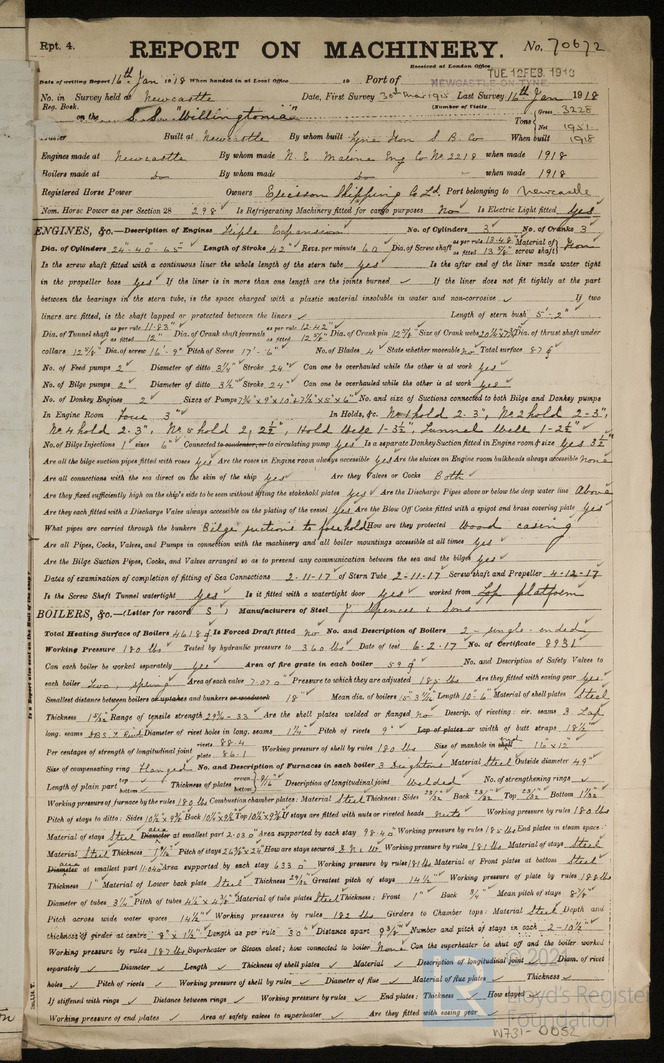 Rpt. 4.
REPORT ON MACHINERY.
No. 70672
Received at London Office TUE. 12 FEB. 1918
Date of writing Report 16th Jan 1918 When handed in at Local Office 19 Port of NEWCASTLE-ON-TYNE
No. in Survey held at Newcastle Date, First Survey Last Survey 16th Jan 1918
Reg. Book. (Number of Visits
on the S.S. "Willingtonia" Tons Gross 3228
Net 1951
Built at Newcastle By whom built Tyne Iron S. B. Co When built 1918
Engines made at Newcastle By whom made N. E. Marine Eng Co No 2218 when made 1918
Boilers made at Do By whom made Do when made 1918
Registered Horse Power Owners Ericsson Shipping Co Ld. Port belonging to Newcastle
Nom. Horse Power as per Section 28 298 Is Refrigerating Machinery fitted for cargo purposes No Is Electric Light fitted Yes
ENGINES, &c.—Description of Engines Triple Expansion No. of Cylinders 3 No. of Cranks 3
Dia. of Cylinders 24"-40"-65" Length of Stroke 42" Revs. per minute 60 Dia. of Screw shaft as per rule 13.48" as fitted Material of screw shaft Iron
Is the screw shaft fitted with a continuous liner the whole length of the stern tube Yes Is the after end of the liner made water tight
in the propeller boss Yes If the liner is in more than one length are the joints burned ✓ If the liner does not fit tightly at the part
between the bearings in the stern tube, is the space charged with a plastic material insoluble in water and non-corrosive ✓ If two
liners are fitted, is the shaft lapped or protected between the liners ✓ Length of stern bush 5'-2"
Dia. of Tunnel shaft as per rule 11.83" as fitted 12" Dia. of Crank shaft journals as per rule 12.42" as fitted 12 5/8" Dia. of Crank pin 12 5/8" Size of Crank webs Dia. of thrust shaft under
collars 12 5/8" Dia. of screw 16'-9" Pitch of Screw 17'-6" No. of Blades 4 State whether moveable No Total surface 87
No. of Feed pumps 2 Diameter of ditto 3 1/4" Stroke 24" Can one be overhauled while the other is at work Yes
No. of Bilge pumps 2 Diameter of ditto 3 1/2" Stroke 24" Can one be overhauled while the other is at work Yes
No. of Donkey Engines 2 Sizes of Pumps No. and size of Suctions connected to both Bilge and Donkey pumps
In Engine Room Four 3" In Holds, &c. No 1 hold 2-3", No 2 hold 2-3",
No 4 hold 2-3", No 5 hold 2, 2 1/2", Hold Well 1-3 1/2", Tunnel Well 1-2 1/2"
No. of Bilge Injections 1 sizes 6" Connected to condenser, or to circulating pump Yes Is a separate Donkey Suction fitted in Engine room & size Yes 3 1/2"
Are all the bilge suction pipes fitted with roses Yes Are the roses in Engine room always accessible Yes Are the sluices on Engine room bulkheads always accessible None
Are all connections with the sea direct on the skin of the ship Yes Are they Valves or Cocks Both
Are they fixed sufficiently high on the ship's side to be seen without lifting the stokehold plates Yes Are the Discharge Pipes above or below the deep water line Above
Are they each fitted with a Discharge Valve always accessible on the plating of the vessel Yes Are the Blow Off Cocks fitted with a spigot and brass covering plate Yes
What pipes are carried through the bunkers Bilge suctions to forehold How are they protected Wood casing
Are all Pipes, Cocks, Valves, and Pumps in connection with the machinery and all boiler mountings accessible at all times Yes
Are the Bilge Suction Pipes, Cocks, and Valves arranged so as to prevent any communication between the sea and the bilges Yes
Dates of examination of completion of fitting of Sea Connections 2-11-17 of Stern Tube 2-11-17 Screw shaft and Propeller 4-12-17
Is the Screw Shaft Tunnel watertight Yes Is it fitted with a watertight door Yes worked from Top platform
BOILERS, &c.—(Letter for record S) Manufacturers of Steel J Spencer & Sons
Total Heating Surface of Boilers 4618 Is Forced Draft fitted No No. and Description of Boilers 2 - single-ended
Working Pressure 180 lbs Tested by hydraulic pressure to 360 lbs Date of test 6.2.17 No. of Certificate 8931
Can each boiler be worked separately Yes Area of fire grate in each boiler 59 No. and Description of Safety Valves to
each boiler Two, spring Area of each valve 7.070 Pressure to which they are adjusted 185 lbs Are they fitted with easing gear Yes
Smallest distance between boilers or uptakes and bunkers or woodwork 18" Mean dia. of boilers Length 10'-6" Material of shell plates Steel
Thickness Range of tensile strength 29 1/2-33 Are the shell plates welded or flanged No Descrip. of riveting: cir. seams 2 Lap
long. seams Diameter of rivet holes in long. seams 1 1/4" Pitch of rivets 9" Lap of plates or width of butt straps 18 1/2"
Per centages of strength of longitudinal joint rivets 88.4 plate 86.1 Working pressure of shell by rules 180 lbs Size of manhole in 16 x 12"
Size of compensating ring Flanged No. and Description of Furnaces in each boiler 3 Deightons Material Steel Outside diameter 49"
Length of plain part top bottom Thickness of plates crown bottom 9/16" Description of longitudinal joint Welded No. of strengthening rings ✓
Working pressure of furnace by the rules 180 lbs Combustion chamber plates: Material Steel Thickness: Sides 23/32 Back 23/32 Top 23/32 Bottom 1 1/32
Pitch of stays to ditto: Sides Back Top If stays are fitted with nuts or riveted heads Nuts Working pressure by rules 180 lbs
Material of stays Steel area Diameter at smallest part 2.03 Area supported by each stay 98.40 Working pressure by rules 185 lbs End plates in steam space:
Material Steel Thickness Pitch of stays How are stays secured Working pressure by rules 181 lbs Material of stays Steel
area Diameter at smallest part Area supported by each stay 633 Working pressure by rules 181 lbs Material of Front plates at bottom Steel
Thickness 1" Material of Lower back plate Steel Thickness 29/32" Greatest pitch of stays 14 1/2" Working pressure of plate by rules 188 lbs
Diameter of tubes 3 1/2" Pitch of tubes Material of tube plates Steel Thickness: Front 1" Back 3/4" Mean pitch of stays
Pitch across wide water spaces 14 1/2" Working pressures by rules 182 lbs Girders to Chamber tops: Material Steel Depth and
thickness of girder at centre 8" x 1 1/2" Length as per rule 30" Distance apart Number and pitch of stays in each 2-10 1/2"
Working pressure by rules 187 lbs Superheater or Steam chest; how connected to boiler None Can the superheater be shut off and the boiler worked
separately ✓ Diameter Length Thickness of shell plates Material Description of longitudinal joint Diam. of rivet
holes Pitch of rivets Working pressure of shell by rules Diameter of flue Material of flue plates Thickness
If stiffened with rings Distance between rings Working pressure by rules End plates: Thickness How stayed
Working pressure of end plates Area of safety valves to superheater Are they fitted with easing gear
© 2021
Lloyd's Register
Foundation
W731-0052